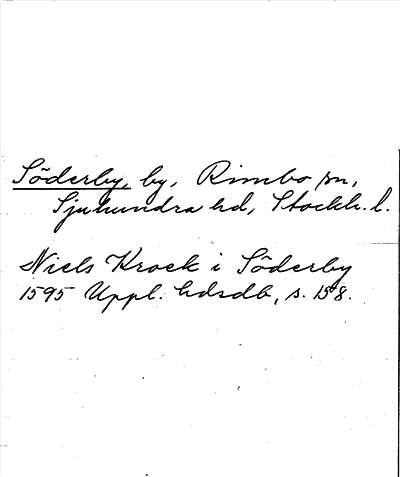 Söderby, by, Rimbo sn,
Sjuhundra hd, Stockh. l.
Niels Krock i Söderby
1595 Uppl. hdrdb, s. 158.